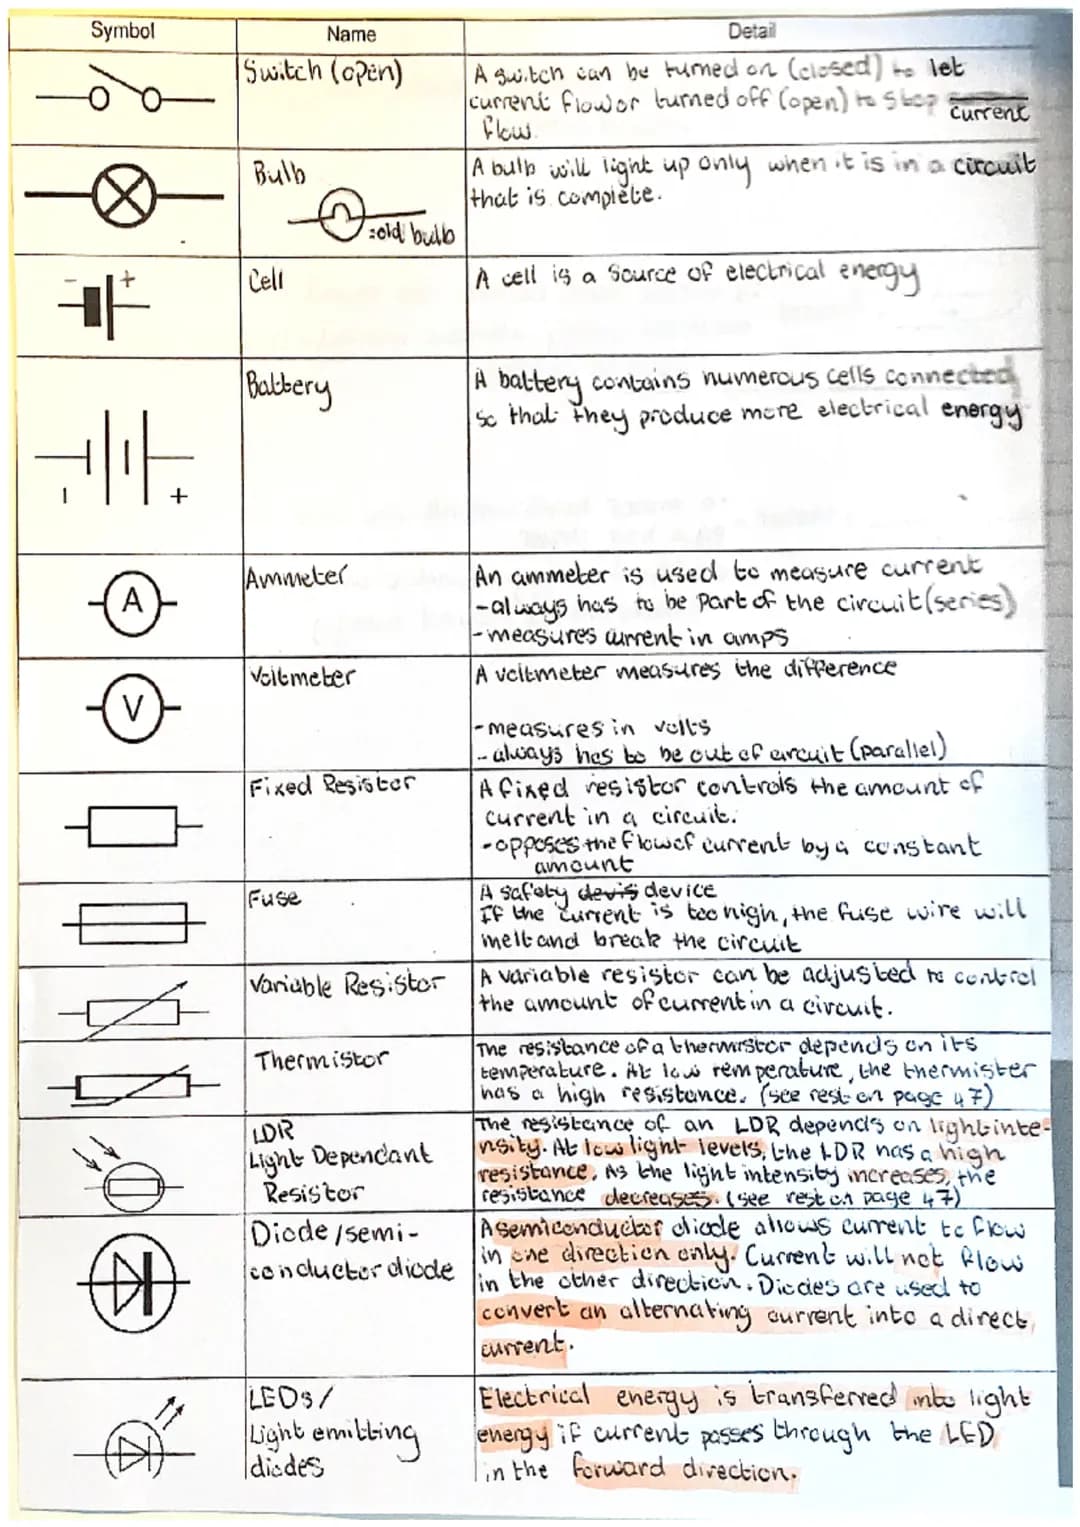 Symbol Name Detail
Switch (open)
A switch can be turned on (closed) to let
current flow or turned off (open) to stop
current
flow.
Bulb
:old bulb
A bulb will light up only when it is in a circuit
that is complete.
- +
Cell
A cell is a source of electrical energy
Battery
A battery contains numerous cells connected
so that they produce more electrical energy
- +
A
Ammeter
An ammeter is used to measure current
-always has to be part of the circuit (series)
-measures current in amps
V
Voltmeter
A voltmeter measures the difference
-measures in volts
-always has to be out of circuit (parallel)
Fixed Resistor
A fixed resistor controls the amount of
current in a circuit.
-opposes the flow of current by a constant
amount
Fuse
A safety devis device
If the current is too high, the fuse wire will
melt and break the circuit
Variable Resistor
A variable resistor can be adjusted to control
the amount of current in a circuit.
Thermistor
The resistance of a thermistor depends on its
temperature. At low temperature, the thermister
has a high resistance. (see rest on page 47)
LDR
Light Dependant
Resistor
The resistance of an LDR depends on light inte-
nsity. At low light levels, the LDR has a high
resistance. As the light intensity increases, the
resistance decreases. (see rest on page 47)
Diode/semi-
conductor diode
A semiconductor diode allows current to flow
in one direction only. Current will not flow
in the other direction. Diodes are used to
convert an alternating current into a direct
current.
LEDs/
Light emitting
diodes
Electrical energy is transferred into light
energy if current passes through the LED
in the forward direction.